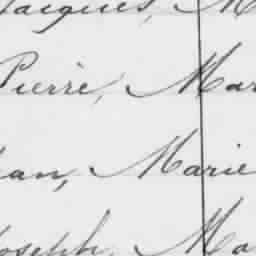 Jacques, M
Pierre, Mar
Jean, Marie
Joseph, Ma